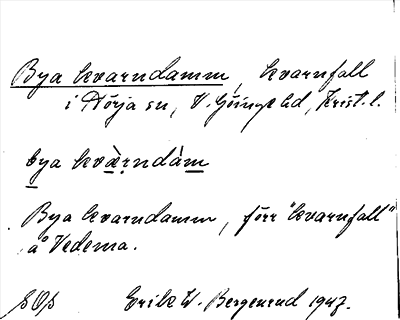 Bya kvarndamm, kvarnfall
i Nörja sn, V. Göinge hd, Krist. l.
bya kvàrndàm
Bya kvarndamm, förr "kvarnfall"
å Vedema.
Erik W. Bergenrud 1947.